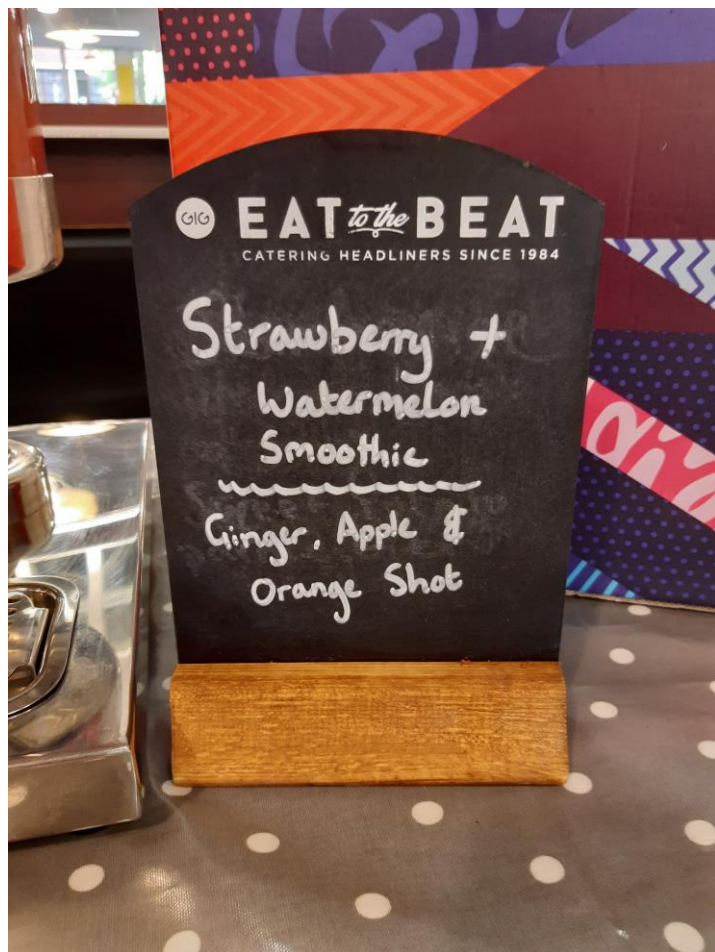 GIG EAT to the BEAT
CATERING HEADLINERS SINCE 1984
Strawberry +
Watermelon
Smoothie
Ginger, Apple &
Orange Shot